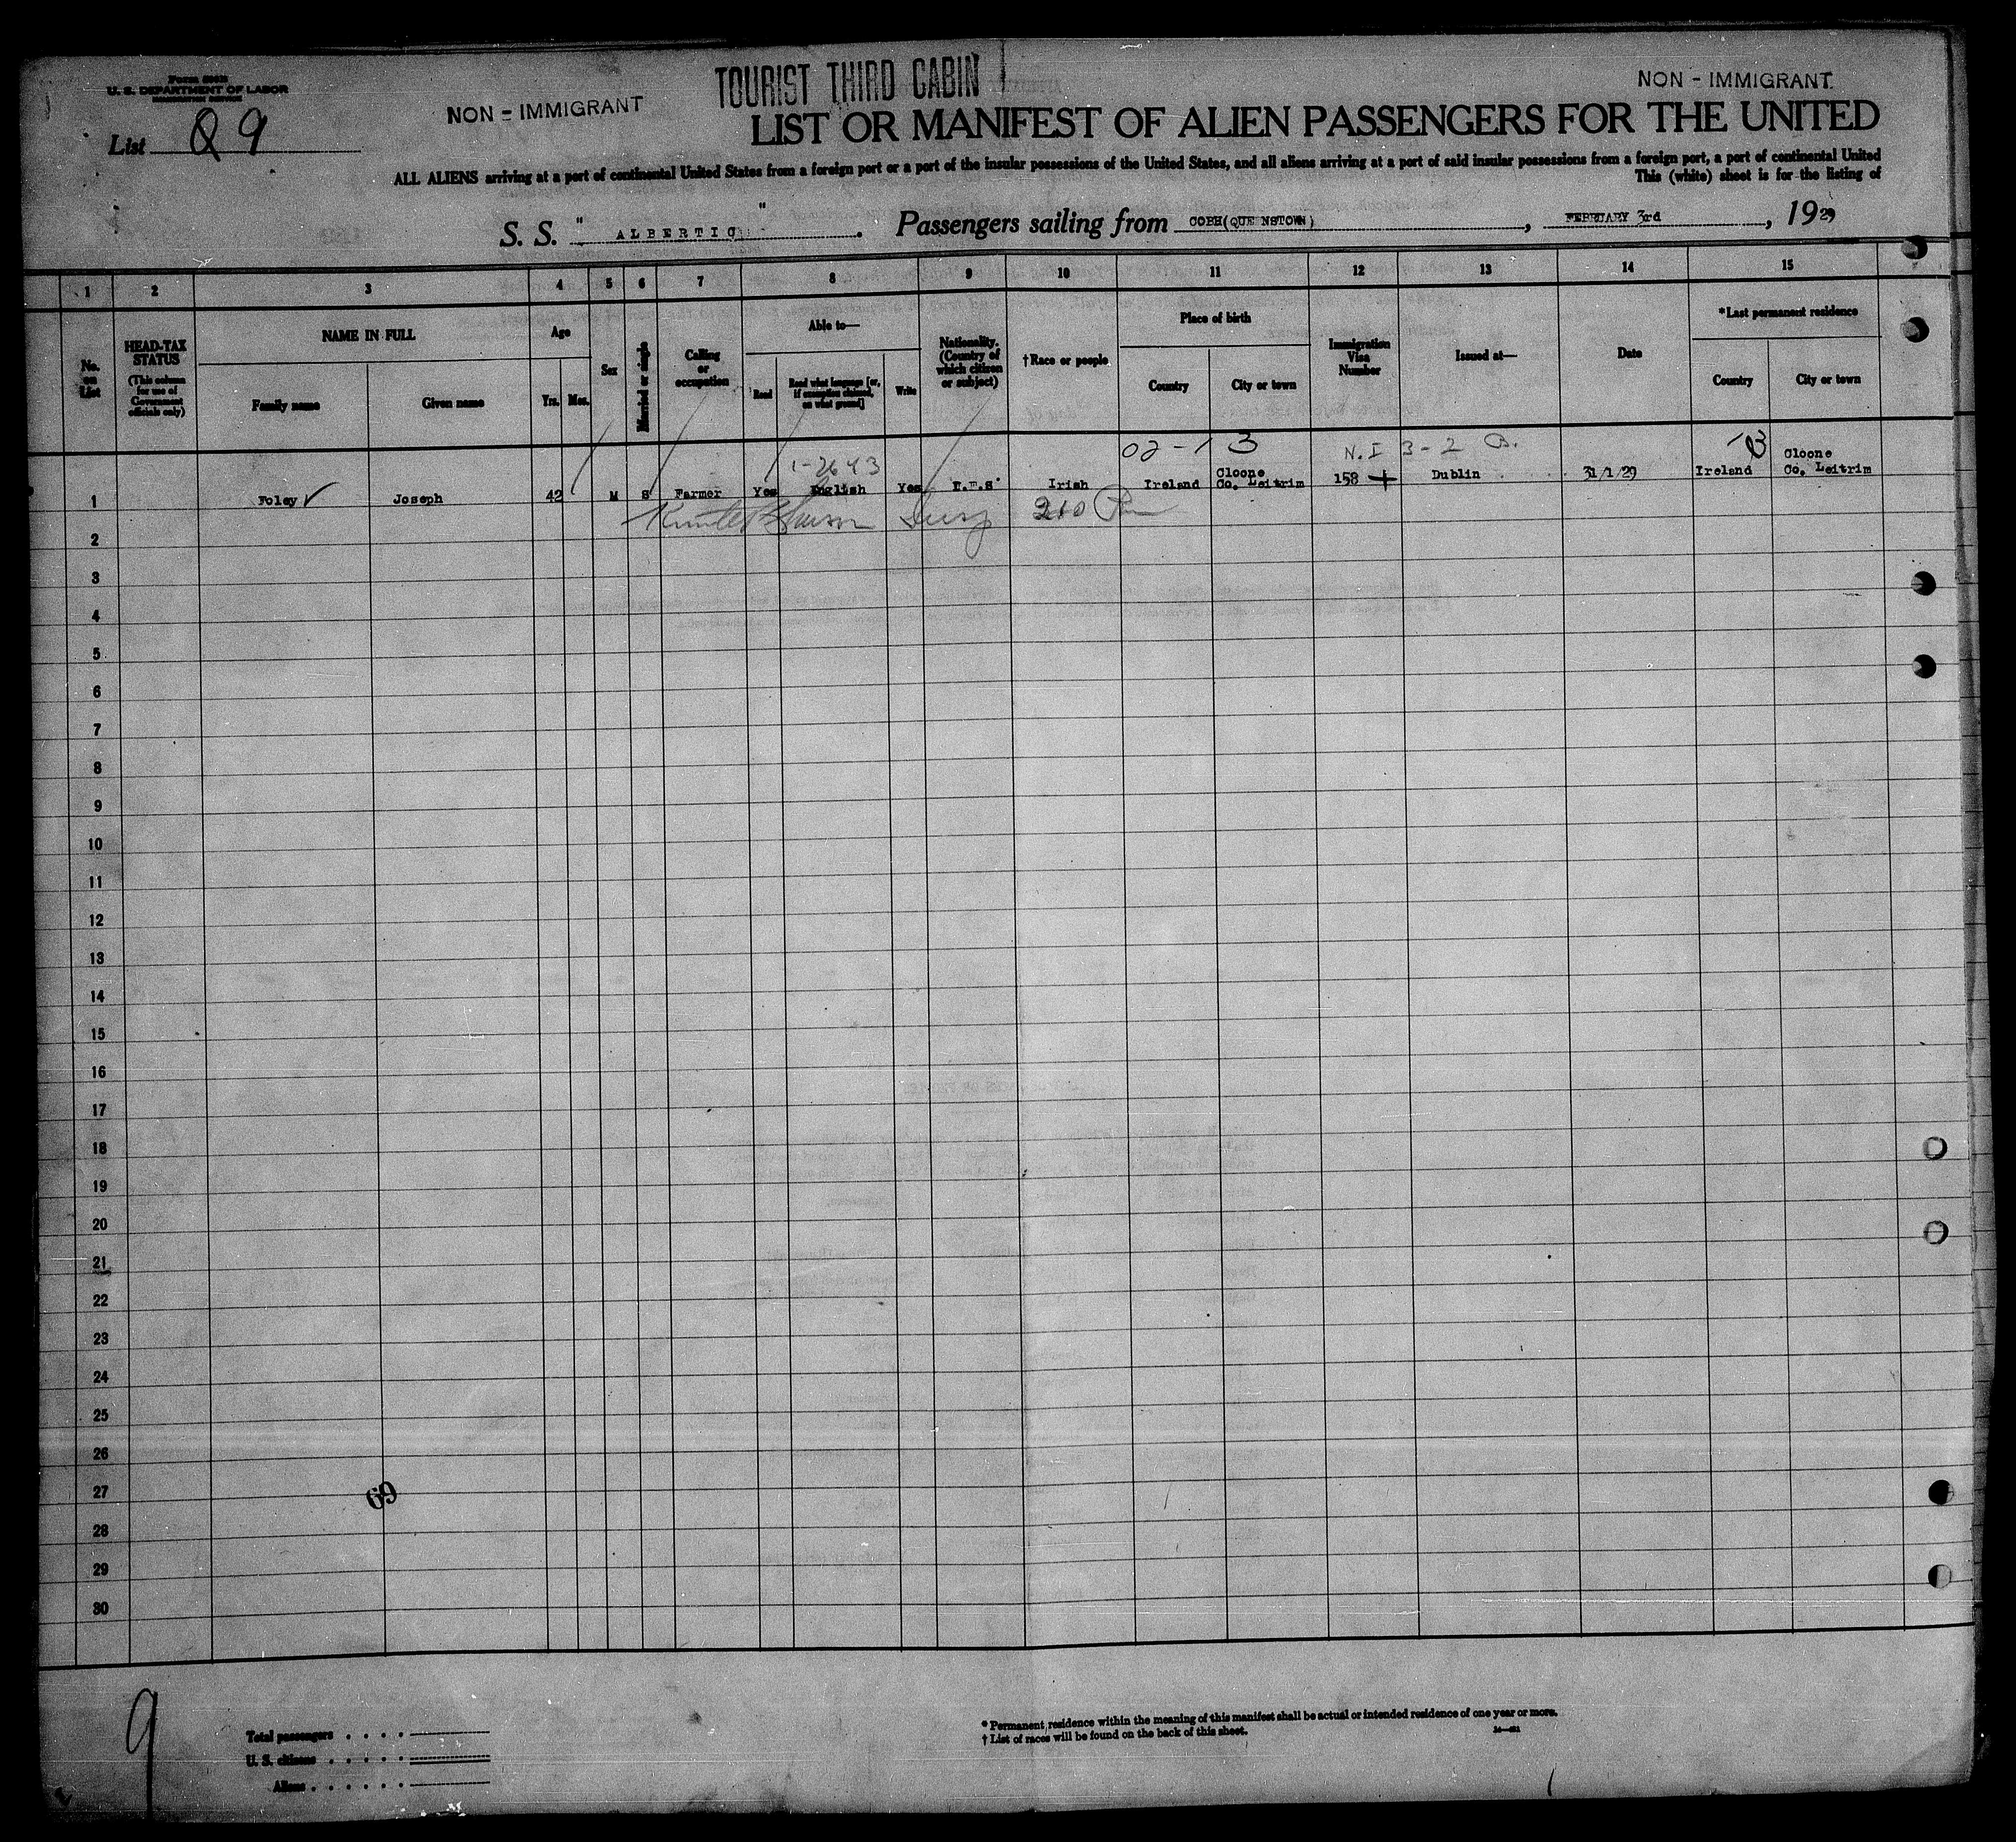 U. S. DEPARTMENT OF LABOR
List Q 9
NON - IMMIGRANT
TOURIST THIRD CABIN
NON - IMMIGRANT.
LIST OR MANIFEST OF ALIEN PASSENGERS FOR THE UNITED
ALL ALIENS arriving at a port of continental United States from a foreign port or a port of the insular possessions of the United States, and all aliens arriving at a port of said insular possessions from a foreign port, a port of continental United
This (white) sheet is for the listing of
S. S. " ALBERTIC " . Passengers sailing from COBH(QUE NSTOWN) , FEBRUARY 3rd , 1929
1 2 3 4 5 6 7 8 9 10 11 12 13 14 15
No. on List
HEAD-TAX STATUS
(This column for use of Government officials only)
NAME IN FULL
Family name
Given name
Age
Yrs. Mos.
Sex
Married or single
Calling or occupation
Able to—
Read
Read what language [or, if exemption claimed, on what ground]
Write
Nationality. (Country of which citizen or subject)
†Race or people
Place of birth
Country
City or town
Immigration Visa Number
Issued at—
Date
*Last permanent residence
Country
City or town
02-1 3
N.I 3-2 B.
1-2643
1 Foley Joseph 42 M S Farmer Yes English Yes I.F.S. Irish Ireland Cloone Co. Leitrim 158 Dublin 31/1/29 Ireland Cloone Co. Leitrim
210
2
3
4
5
6
7
8
9
10
11
12
13
14
15
16
17
18
19
20
21
22
23
24
25
26
27
69
28
29
30
9
Total passengers
U. S. citizens
Aliens
* Permanent residence within the meaning of this manifest shall be actual or intended residence of one year or more.
† List of races will be found on the back of this sheet.